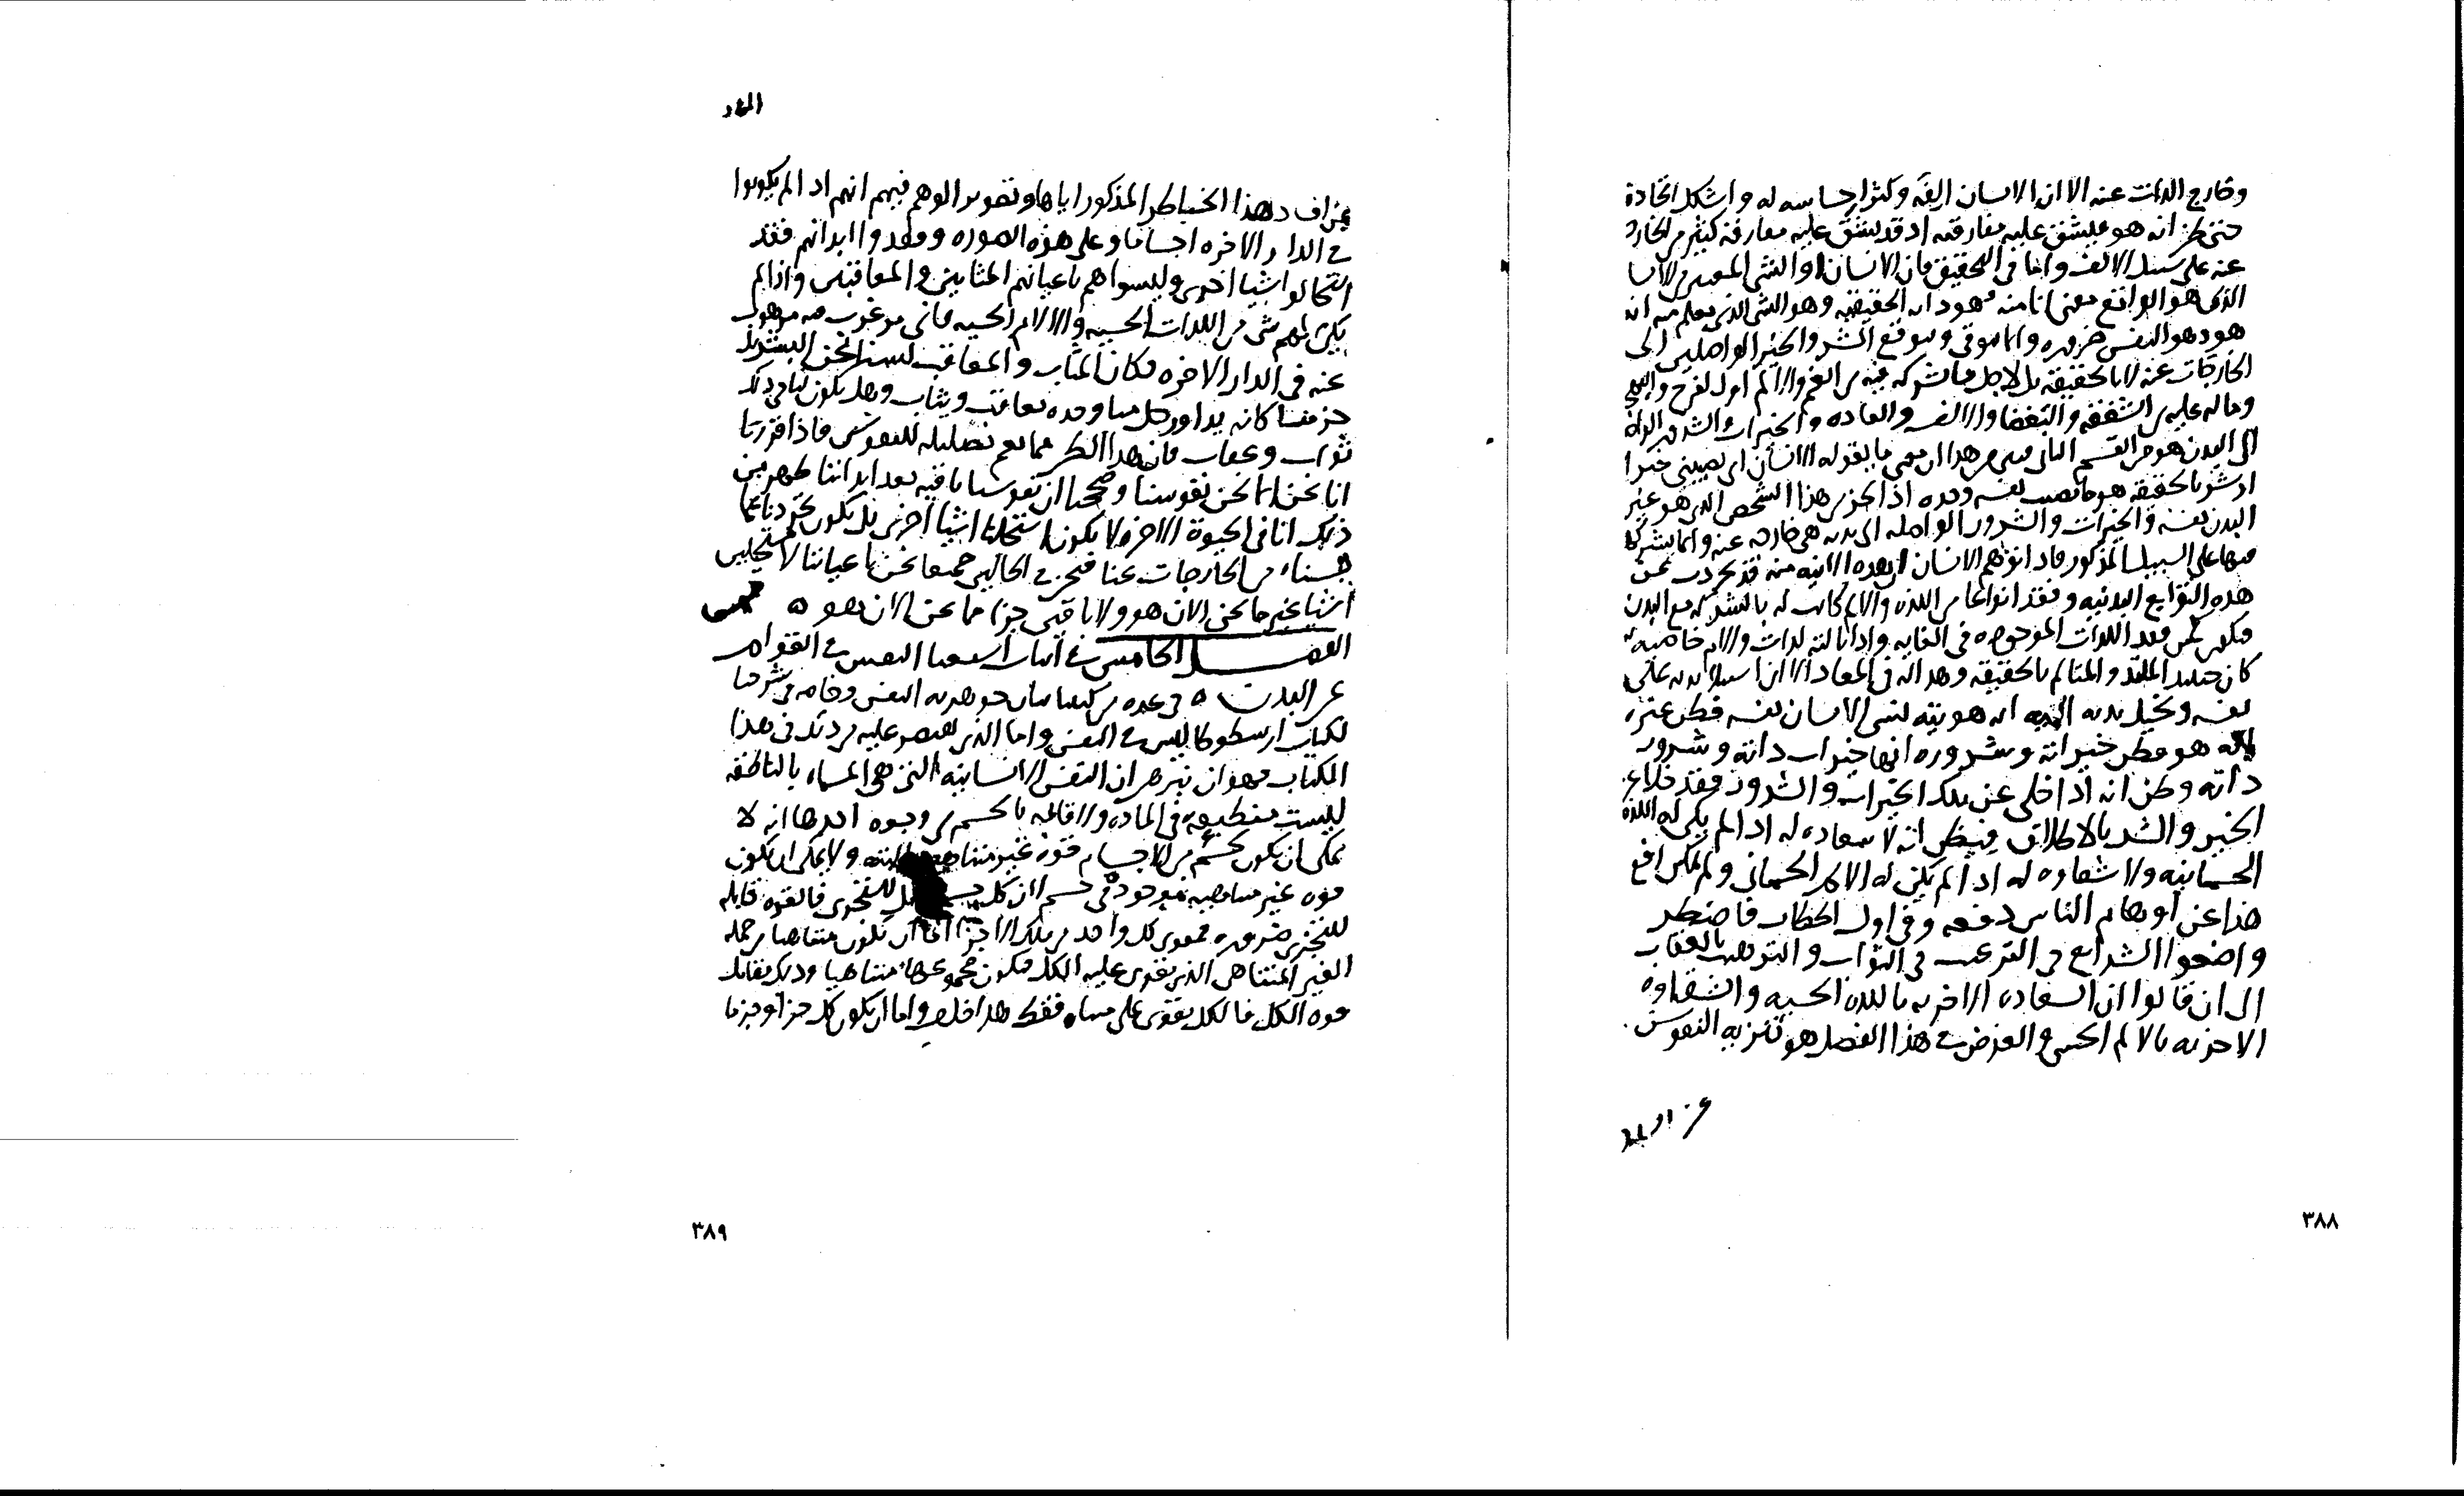 وخارج الذات عنه الا ان الانسان الفه وكثر احساسه له واشكل اتحاده
حتى ظن انه هو فيشق عليه مفارقته اذ قد يشق عليه مفارقة كثير من الخارجه
عنه على سبيل الالف واما في التحقيق فان الانسان او الشى المعتبر من الانسان
الذى هو الواقع معنى انا منه فهو ذاته الحقيقيه وهو الشى الذى يعلم منه انه
هو وهو النفس ضرورة واما موقى وموقع الشر والخير الواصلين الى
الخارجات عنه لا بالحقيقة بل لاجل مشاركه فيه من الغم والالم او الفرح
وماله عليه من الشفقه والالف والعاده والخيرات والشرور الواصلة
الى البدن هو من القسم الثانى فبين من هذا ان معنى ما يقوله الانسان انى يصيبنى خير
او شر بالحقيقة هو ما يصيب نفسه وحده اذ الجزء من هذا الشخص الذى هو غير
البدن نفسه والخيرات والشرور الواصله الى بدنه هى خارجه عنه وانما يشترك
فيها على السبيل المذكور فاذا توهم الانسان ان هذه الانيه منه قد تجردت عن
هذه التوابع البدنيه وفقد انواعا من اللذه والالم كانت له بالشركه مع البدن
فيكون كمن فقد اللذات الموجوده فى الغايه واذا نالته لذات والام خاصيه له
كان حينئذ الملتذ والمتالم بالحقيقه وهذا له فى المعاد الا ان استيلا بدنه على
نفسه وتخيل بدنه اليه انه هويته نسى الانسان نفسه فظن غيره
انه هو فظن خيراته وشروره انها خيرات ذاته وشرور
ذاته وظن انه اذا خلى عن تلك الخيرات والشرور فقد خلا عن
الخير والشر بالاطلاق فيظن انه لا سعاده له اذا لم يكن له اللذه
الجسمانيه ولا شقاوه له اذا لم يكن له الالم الجسمانى ولم يمكن رفع
هذا عن اوهام الناس دفعه وفى اول الخطاب فاضطر
واضعوا الشرايع فى الترغيب فى الثواب والترهيب بالعقاب
الى ان قالوا ان السعاده الاخريه باللذه الحسيه والشقاوه
الاخريه بالالم الحسى والغرض فى هذا الفصل هو تنزيه النفوس
٣٨٨
هذا الخاطر المذكور اياها وتصوير الوهم فيهم انهم اذا لم يكونوا
فى الدار الاخره اجساما وعلى هذه الصوره وفقدوا ابدانهم فقد
استحالوا اشيا اخرى وليسوا هم باعيانهم المثابين والمعاقبين واذا لم
يكن لهم شى من اللذات الحسيه والالام الحسيه فاى مرغوب فيه مرهوب
عنه فى الدار الاخره فكان المثاب والمعاقب لسنا نحن البشر بل
جز منا كانه بداوة حل منا وحده يعاقب ويثاب وهل يكون لنا فى ذلك
ثواب وعقاب فان هذا الظن مما يعم تضليله للنفوس فاذا قررنا
انا نحن انما نحن نفوسنا وصححنا ان نفوسنا باقيه بعد ابداننا ظهر من
ذلك انا فى الحيوة الاخره لا يكون استحلنا اشيا اخرى بل يكون تجردنا عما
من الخارجات عنا فنحن فى الحالين جميعا نحن باعياننا لا مستحيلين
اشيا غير ما نحن الان هو ولا باقين جزا مما نحن الان هو
الفصل الخامس فى اثبات استغنا النفس فى القوام
عن البدن فى عده من كتبنا بيان جوهريه النفس وخاصه فى شرحنا
لكتاب ارسطوطاليس فى النفس واما الذى نقتصر عليه من ذلك فى هذا
الكتاب فهو ان نبرهن ان النفس الانسانيه التى هى المسماه بالناطقه
ليست منطبعه فى الماده ولا قائمه بالجسم من وجوه احدها انه لا
يمكن ان يكون لجسم من الاجسام قوة غير متناهيه البته ولا يمكن ان يكون
قوه غير متناهيه موجودة فى جسم لان كل للتجزى فالقوه قابله
للتجزى ضروره فقوى كل واحد من تلك الاجزا اما ان تكون متناهيا من جمله
الغير المتناهى الذى يقوى عليه الكل فيكون مجموعها متناهيا وذلك يقابل
قوه الكل فالكل يقوى على متناه فقط هذا خلف واما ان يكون كل جز او جز ما
٣٨٩